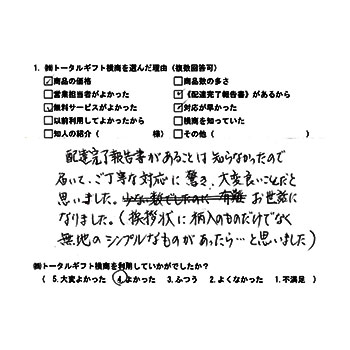 1. ㈱トータルギフト横商を選んだ理由（複数回答可）
☑商品の価格 □商品数の多さ
□営業担当者がよかった □《配達完了報告書》があるから
☑無料サービスがよかった ☑対応が早かった
□以前利用してよかったから □横商を知っていた
□知人の紹介（ 様） □その他（ ）
配達完了報告書があることは知らなかったので
届いて、ご丁寧な対応に驚き、大変良いことだと
思いました。少ない数でしたのに お世話に
なりました。（挨拶状に柄入のものだけでなく
無地のシンプルなものがあったら…と思いました）
㈱トータルギフト横商を利用していかがでしたか？
（ 5.大変よかった 4.よかった 3.ふつう 2.よくなかった 1.不満足 ）